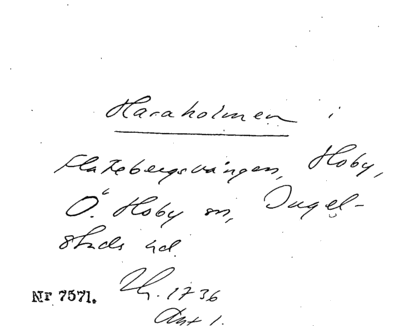 Haraholmen i
Flakebergsvången, Hoby,
Ö. Hoby sn, Ingel-
stads hd.
Nr 7571. Lh. 1736
Akt 1.